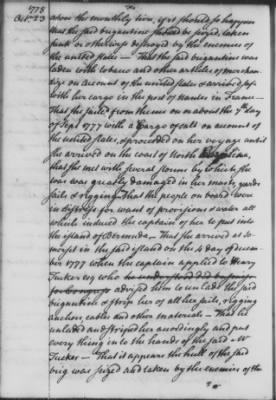 1778
Oct. 23
above the monthly hire, if it should so happen
that the said brigantine should be seized, taken
sunk or otherwise destroyed by the enemies of
the united states — That the said brigantine was
laden with tobacco and other articles of merchan-
dize on account of the united states & arrived safe
with her cargo in the port of Nantes in France —
That she sailed from thence on or about the 7th day
of Sept. 1777 with a Cargo of salt on account of
the united states, & proceeded on her voyage until
she arrived on the coast of North
that she met with several storms by which she
was was greatly damaged in her masts, yards
sails & rigging That the people on board were
in distress for want of provisions & water all
which induced the captain of her to put into
the island of Bermuda — That she arrived at So-
merset in the said island on the 4 day of decem-
ber 1777 when the captain applied to Henry
Tucker esq who
advised him to unlade the said
brigantine & strip her of all her sails, rigging
anchors, cables and other materials — That he
unladed and striped her accordingly and put
every thing into the hands of the said Mr
Tucker — That it appears the hull of the said
brig was seized and taken by the enemies of the